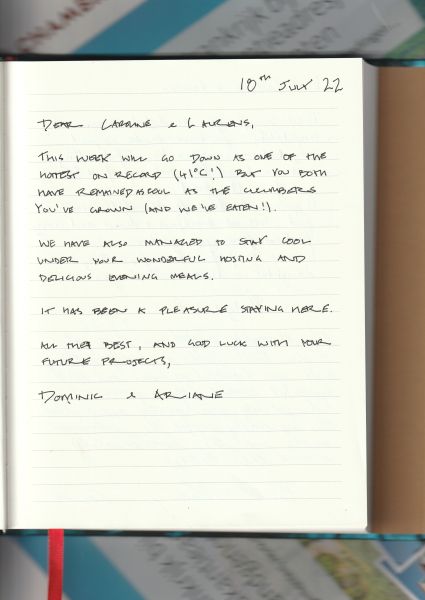 18th July 22
DEAR CAROLINE & LAURENS,
THIS WEEK WILL GO DOWN AS ONE OF THE
HOTTEST ON RECORD (41°C!) BUT YOU BOTH
HAVE REMAINED AS COOL AS THE CUCUMBERS
YOU'VE GROWN (AND WE'VE EATEN!).
WE HAVE ALSO MANAGED TO STAY COOL
UNDER YOUR WONDERFUL HOSTING AND
DELICIOUS EVENING MEALS.
IT HAS BEEN A PLEASURE STAYING HERE.
ALL THE BEST, AND GOOD LUCK WITH YOUR
FUTURE PROJECTS,
DOMINIC & ARIANE